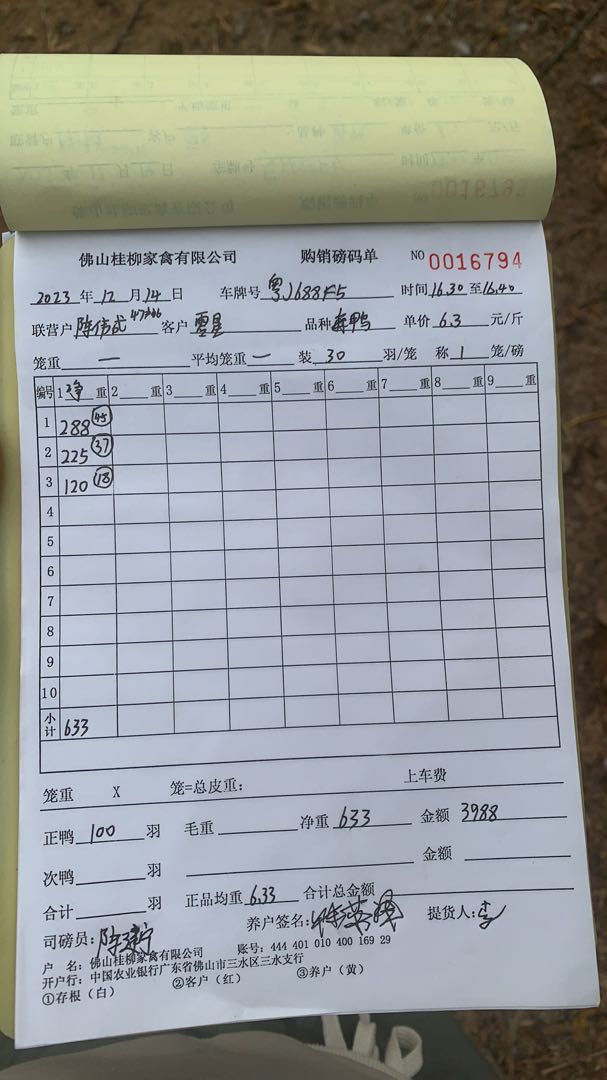 佛山桂柳家禽有限公司 购销磅码单 NO 0016794
2023 年 12 月 14 日 车牌号 粤J688F5 时间 16.30 至 16.40
联营户 陈伟武 客户 零星 品种 鸭 单价 6.3 元/斤
笼重 一 平均笼重 一 装 30 羽/笼 称 1 笼/磅
编号 1 净 重 2 重 3 重 4 重 5 重 6 重 7 重 8 重 9 重
1 288 45
2 225 37
3 120 18
4
5
6
7
8
9
10
小计 633
笼重 X 笼=总皮重: 上车费
正鸭 100 羽 毛重 净重 633 金额 3988
次鸭 羽 金额
合计 羽 正品均重 6.33 合计总金额
司磅员: 养户签名: 提货人:
户 名: 佛山桂柳家禽有限公司 账号: 444 401 010 400 169 29
开户行: 中国农业银行广东省佛山市三水区三水支行
①存根（白） ②客户（红） ③养户（黄）